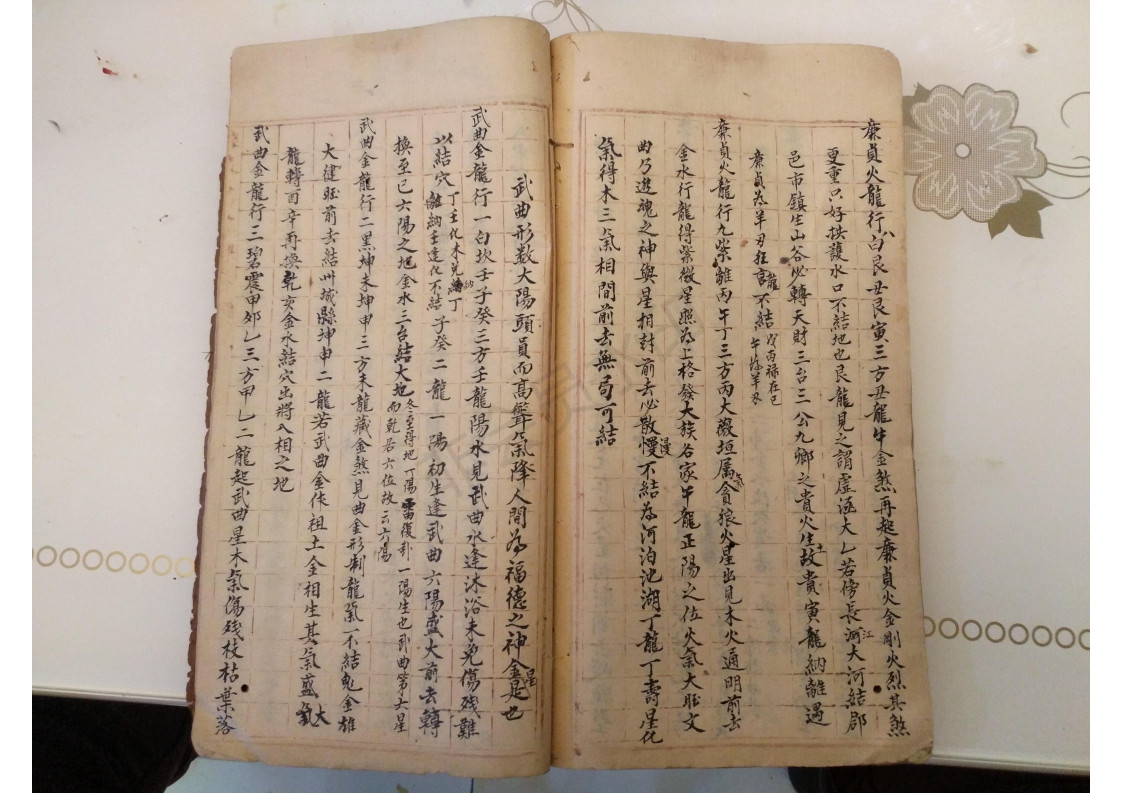 廉貞火龍行八白艮丑艮寅三方丑龍牛金煞再起廉貞火金剛火烈其煞
更重只好拱護水口不結地也艮龍見之謂虛沍大乚若傍長江河大河結郡
邑市鎮生山谷必轉天財三台三公九卿之貴火生土故貴寅龍納離遇
廉貞為羊刃狂言龍不結戊丙祿在巳
午為羊刃
廉貞火龍行九紫離丙午丁三方丙大微垣属貪狼火星出見木火通明前去
金水行龍得紫微星照為上格發大族名家午龍正陽之位火氣大旺文
曲乃遊魂之神與星相尅前去必散慢漫不結為河泊池湖丁龍丁壽星化
氣得木三氣相間前去無局可結
武曲形数大陽頭員而高聳氣降人間為福德之神金星是也
武曲金龍行一白坎壬子癸三方壬龍陽水見武曲水逢沐浴未免傷殘難
以結穴丁壬化木兌納丁
離納壬逢化不結子癸二龍一陽初生逢武曲六陽盛大前去轉
換至巳六陽之地金水三台結大地冬至得地丁陽雷復卦一陽生也武曲第六星
而乾居六位故云六陽
武曲金龍行二黑坤未坤申三方未龍藏金煞見曲金形制龍氣不結鬼金雄
大健旺前去結州城縣坤申二龍若武曲金作祖土金相生其氣盛大氣
龍轉酉辛再換乾亥金水結穴出將入相之地
武曲金龍行三碧震甲夘乚三方甲乚二龍起武曲星木氣傷殘枝枯葉落